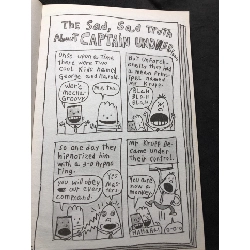 The Sad, Sad Truth
About CAPTAIN UNDERPANTS
Once upon a time
there were Two
cool kids named
George and Harold.
We're
Groovy
Me Too.
But unfortu-
nately they had
a mean Princi-
pal named
Mr. Krupp
BLAH
BLAH
BLAH
So one day they
hipnotized him
with a 3-D Hypno
Ring.
you will obey
our every
command.
Yes
Masters
Mr. Krupp Be-
came under
their control.
You are
now a
monkey
HaHaHa!